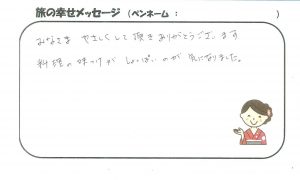 旅の幸せメッセージ （ペンネーム： ）
みなさま やさしくして頂きありがとうございます
料理の味つけが しょっぱいのが 気になりました。